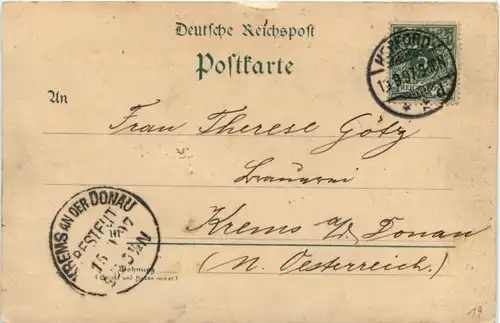 Deutsche Reichspost
Postkarte
An
Frau Therese Götz
Brauerei
Krems a/d. Donau
(N. Oesterreich.)
KREMS AN DER DONAU
BESTELLT
Wohnung
19